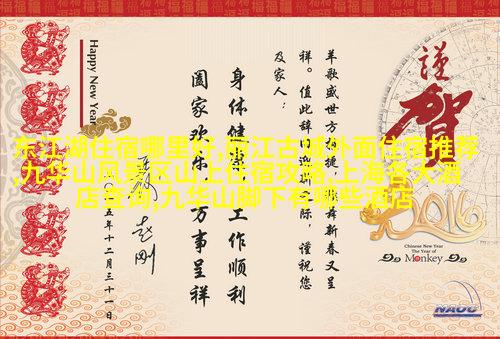 东江湖住宿哪里好,丽江古城外面住宿推荐
,九华山风景区山上住宿攻略·上海各大酒
店查询,九华山脚下有哪些酒店
謹
賀
2016
Chinese New Year
The Year of
Monkey
NAOC
羊歌盛世方捷舞新春又呈
祥。值此辞旧迎新之际，谨祝您
及家人：
身体健康，工作顺利
阖家欢乐，万事呈祥
赵刚
五年十二月三十一日
Happy New Year